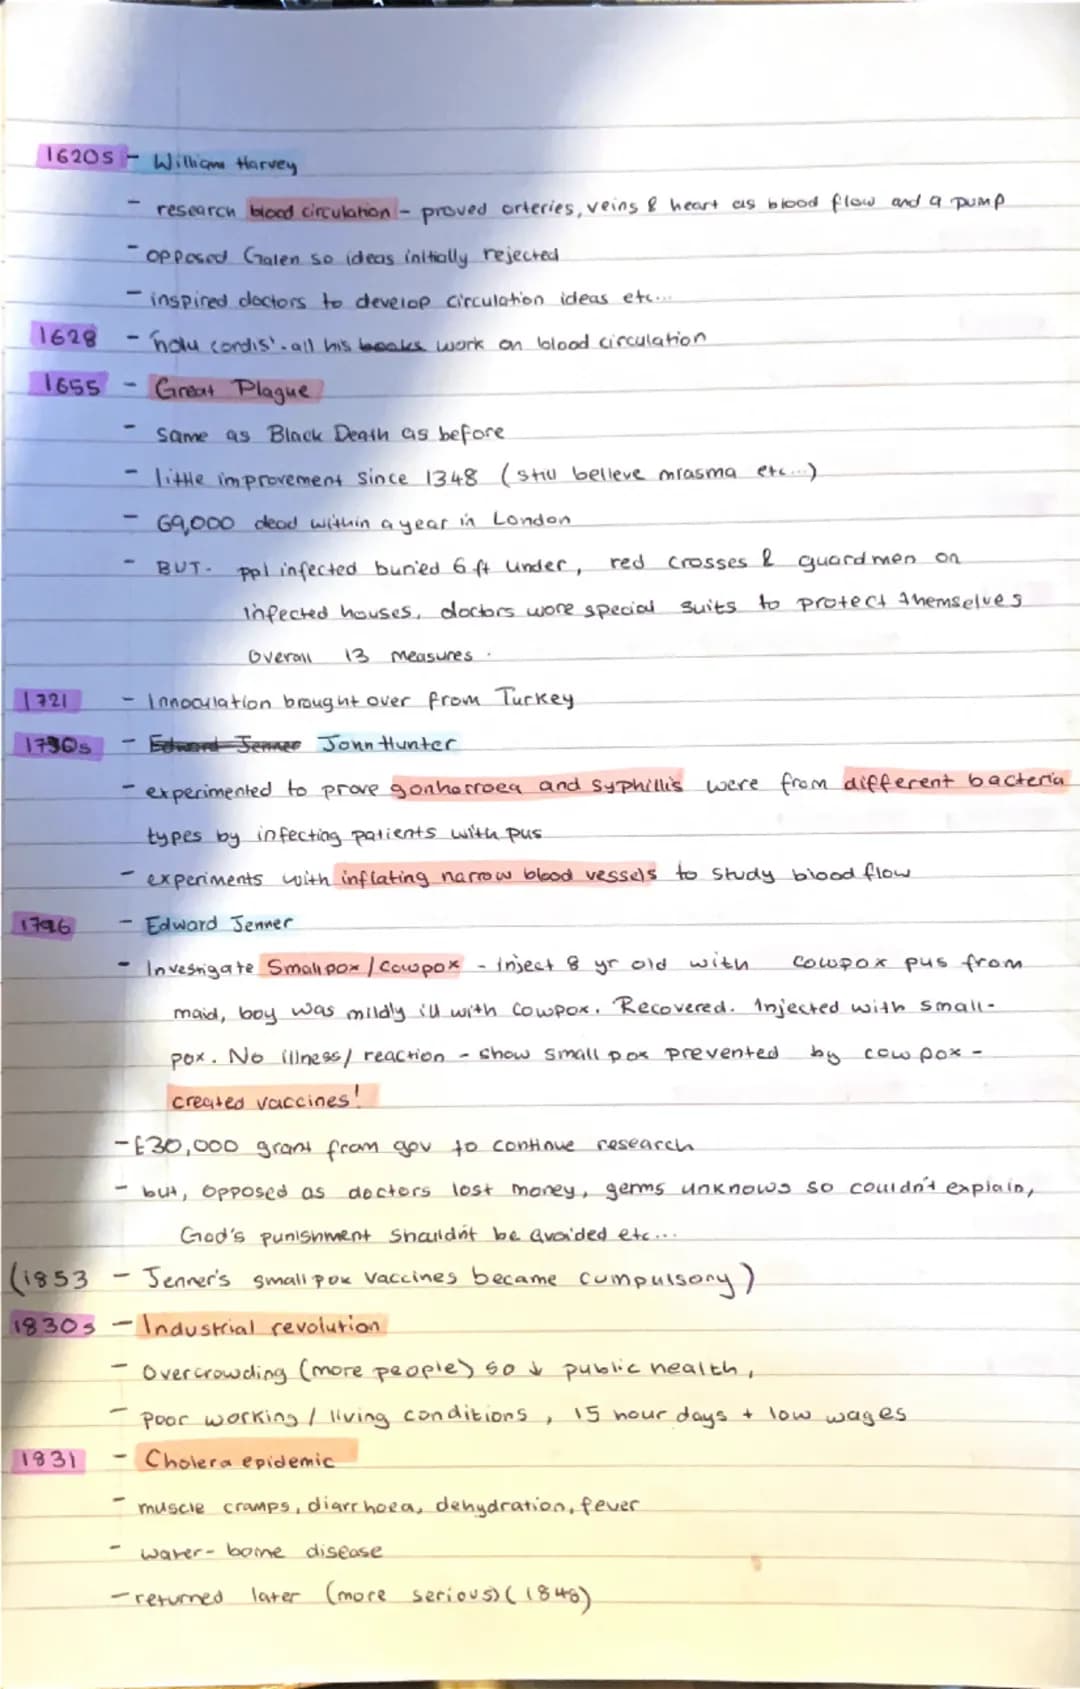 1620s - William Harvey
- research blood circulation - proved arteries, veins & heart as blood flow and a pump
- opposed Galen so ideas initially rejected
- inspired doctors to develop circulation ideas etc...
1628 - 'nolu cordis' - all his books work on blood circulation
1655 - Great Plague
- Same as Black Death as before
- little improvement since 1348 (still believe miasma etc...)
- 69,000 dead within a year in London
- BUT- ppl infected buried 6 ft under, red crosses & guardmen on
infected houses, doctors wore special suits to protect themselves
Overall 13 measures.
1721 - Innoculation brought over from Turkey
1790s - Edward Jenner John Hunter
- experimented to prove gonhorroea and syphillis were from different bacteria
types by infecting patients with pus
- experiments with inflating narrow blood vessels to study blood flow
1796 - Edward Jenner
- Investigate Smallpox / Cowpox - inject 8 yr old with cowpox pus from
maid, boy was mildly ill with cowpox. Recovered. Injected with small-
pox. No illness/ reaction - show smallpox prevented by cowpox -
created vaccines!
- £30,000 grant from gov to continue research
- but, opposed as doctors lost money, germs unknows so couldn't explain,
God's punishment shouldn't be avoided etc...
(1853 - Jenner's smallpox vaccines became cumpulsory)
1830s - Industrial revolution
- Overcrowding (more people) so ↓ public health,
- poor working / living conditions, 15 hour days + low wages
1831 - Cholera epidemic
- muscle cramps, diarrhoea, dehydration, fever
- water-borne disease
- returned later (more serious) (1848)